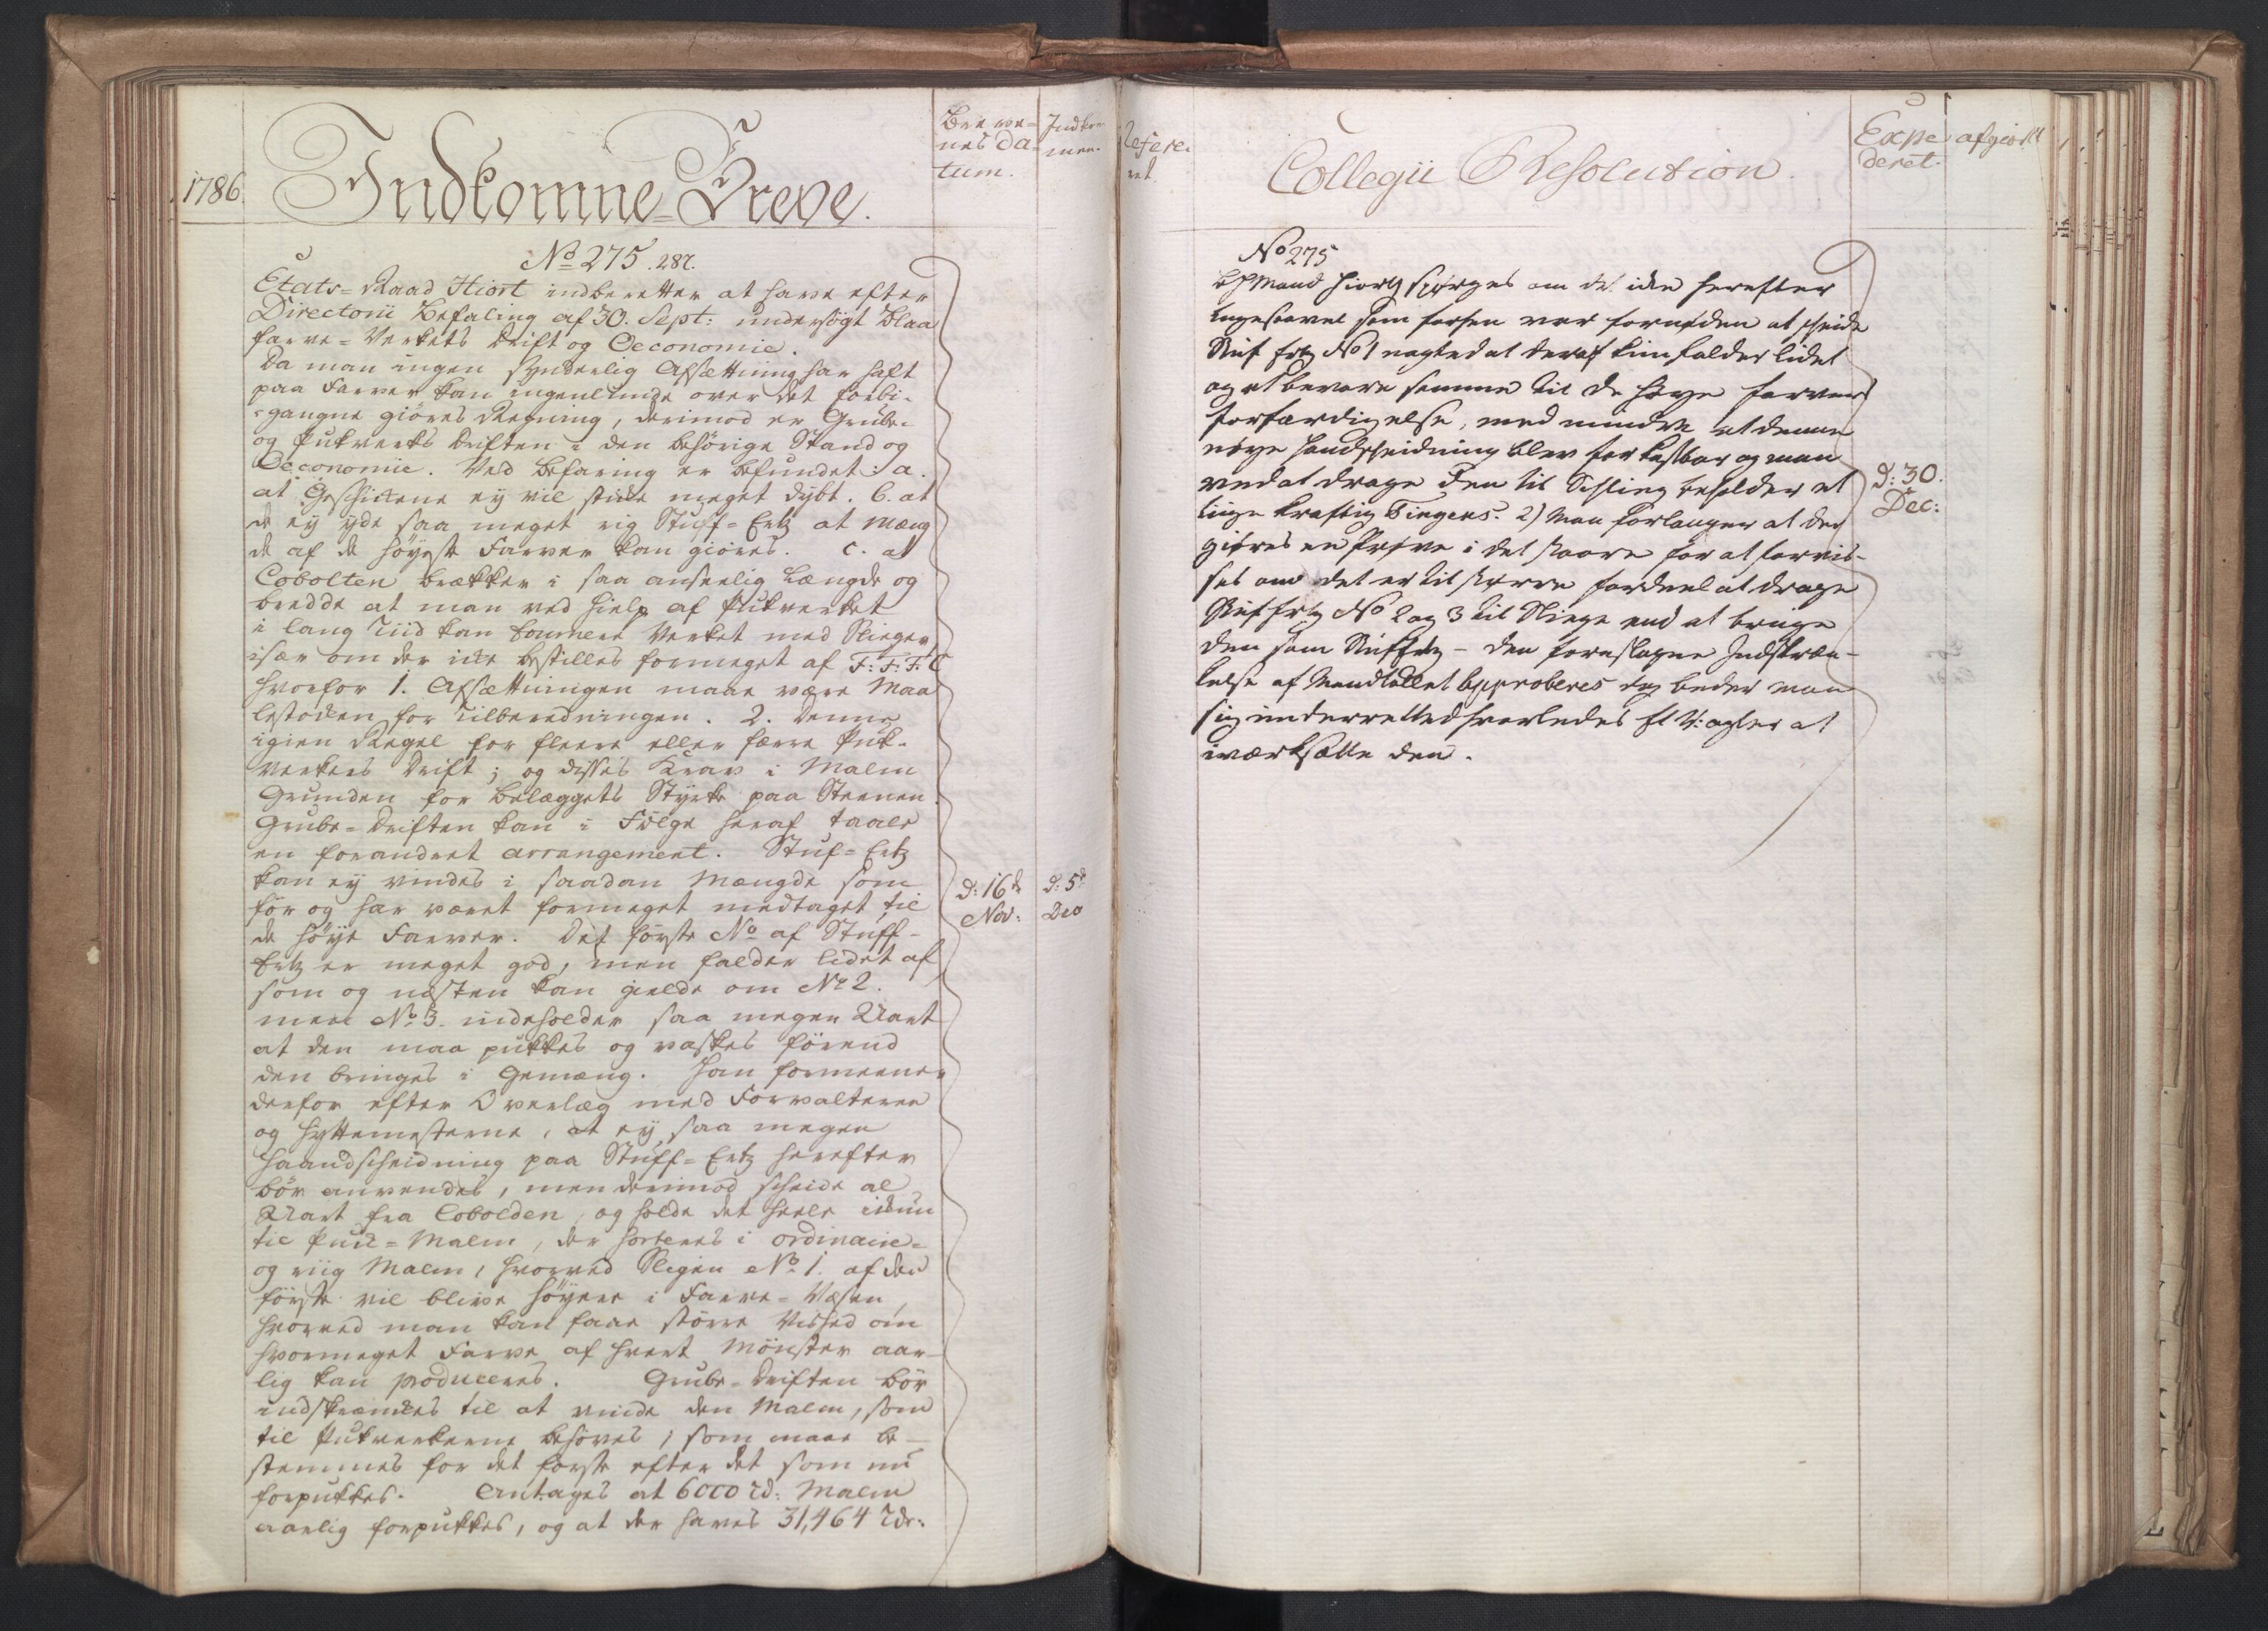 1786.
Indkomne Breve.
Breve=
nes Da=
tum.
Indkom=
men.
No 275. 287.
Etats=Raad Hiort indberetter at have efter
Directorii Befaling af 30. Sept: undersögt Blaa
farve=Verkets Drift og Oeconomie.
Da man ingen synderlig Afsættning har haft
paa Farver kan ingenlunde over det forbi=
=gangne giöres Regning, derimod er Grube=
og Pukverks driften i den behörige Stand og
Oeconomie. Ved Befaring er befundet: a.
at Geschickene ey vil stikke meget dybt. b. at
de ey yde saa meget rig Stuff=Ertz at Mæng
de af de höyeste Farver kan giöres. c. at
Cobolten brækker i saa anseelig Længde og
bredde at man ved hielp af Pukverket
i lang Tiid kan fournere Verket med Slieger,
især om der icke bestilles formeget af F:F:F:C
hvorfor 1. Afsættningen maae være Maa
lestocken for Tilberedningen. 2. denne
igien Regel for fleere eller færre Puk=
verkers Drift; og disses Krav i Malm
Grunden for belæggets Styrke paa Steenen.
Grube=Driften kan i Fölge heraf taale
en forandret arrangement. Stuf=Ertz
kan ey vindes i saadan Mængde som
för og har været formeget medtaget til
de höye Farver. Det förste No af Stuff=
Ertz er meget god, men falder lidet af
som og næsten kan gielde om No 2.
men No 3. indeholder saa megen Qvart
at den maa pukkes og vaskes förend
den bringes i Gemæng. Han formeener
derfor efter Overlæg med Forvalteren
og Hyttemesterne, at ey saa megen
Haandscheidning paa Stuff=Ertz herefter
bör anvendes, men derimod scheide al
Qvart fra Cobolden, og holde det heele ickun
til Puck=Malm, der sorteres i ordinaire=
og riig Malm, hvorved Sligen No 1. af den
förste vil blive höyere i Farve=Væsen,
hvorved man kan faae större Vished om
hvormeget Farve af hvert Mönster aar=
lig kan produceres. Grube=Driften bör
indskrænkes til at vinde den Malm, som
til Pukverkerne behöves, som maae be=
stemmes for det förste efter det som nu
forpukkes. Antages at 6000 Td: Malm
aarlig forpukkes, og at der haves 31,464 Tdr:
d: 16de
Nov:
d: 5te
Dec
Refere=
ret.
Collegii Resolution.
Expe
deret.
afgiort
No 275
Hiort spörges om det icke herefter
ligesaavel som forhen var fornöden at scheide
Stuf Ertz No 1 nagted at deraf kun falder lidet
og at bevare samme til de höye farvers
forfærdigelse, med mindre at denne
nöye Handscheidning blev for kostbar og man
ved at drage den til Schlieg beholder et
lige kraftig Tingens. 2) Man forlanger at der
giöres en Pröve i det smaae for at forvis=
ses om det er til större fordeel at drage
Stuf Ertz No 2 og 3 til Sliege end at bruge
den som Stuffertz - den foreslagne Indskræn=
kelse af Mandtallet approberes dog beder man
sig underrettet hvorledes H V: agter at
iværksætte den.
d: 30.
Dec: